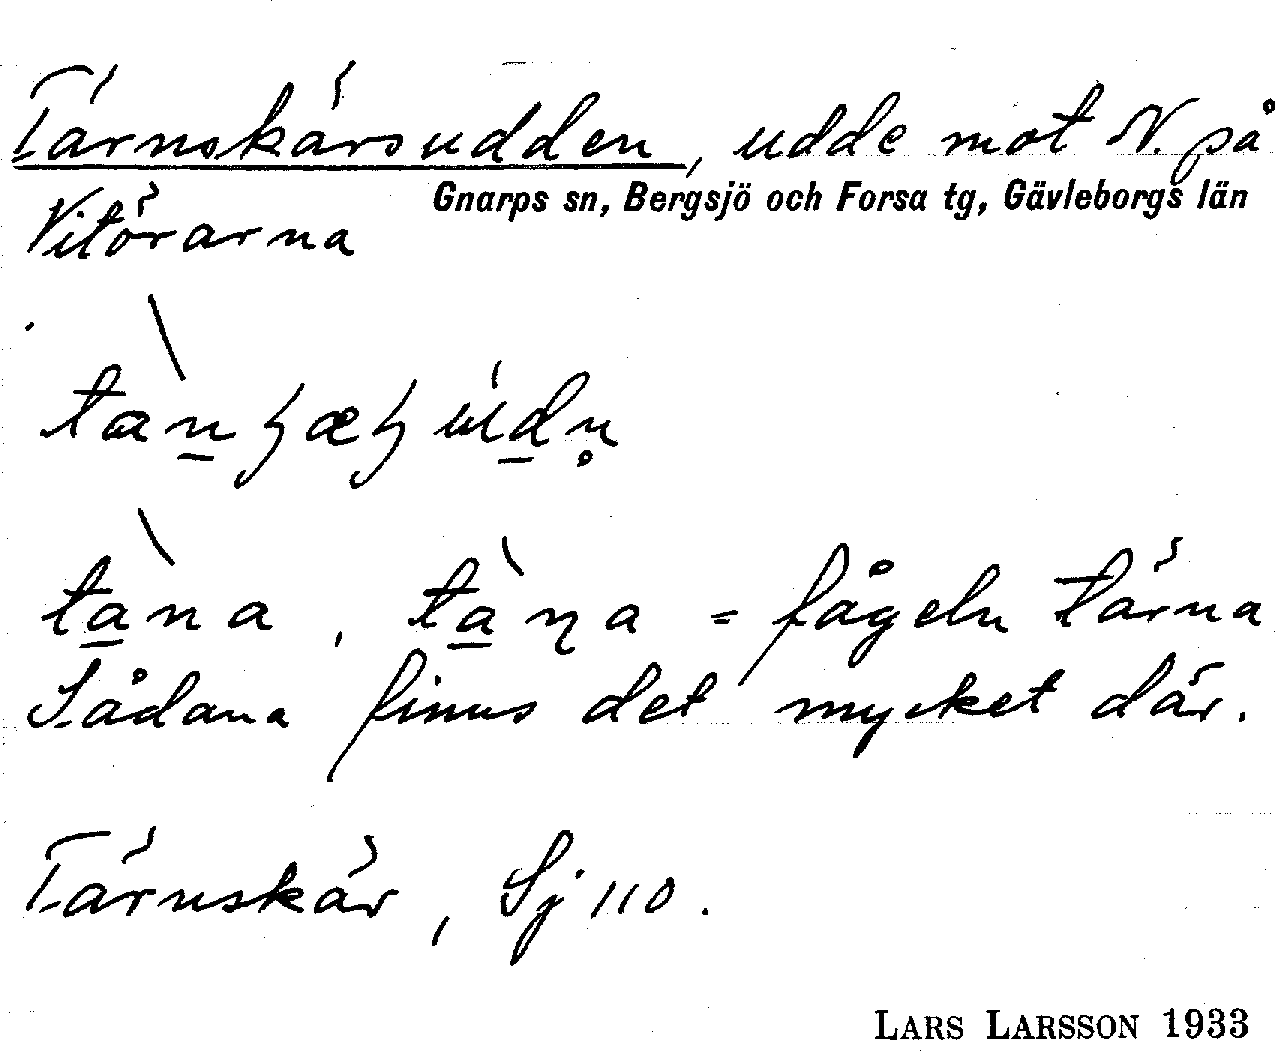 Tärnskärsudden, udde mot N. på
Gnarps sn, Bergsjö och Forsa tg, Gävleborgs län
Vitörarna
tàna, tàɳa = fågeln tärna
Sådana finns det mycket där.
Tärnskär, Sj 110.
LARS LARSSON 1933